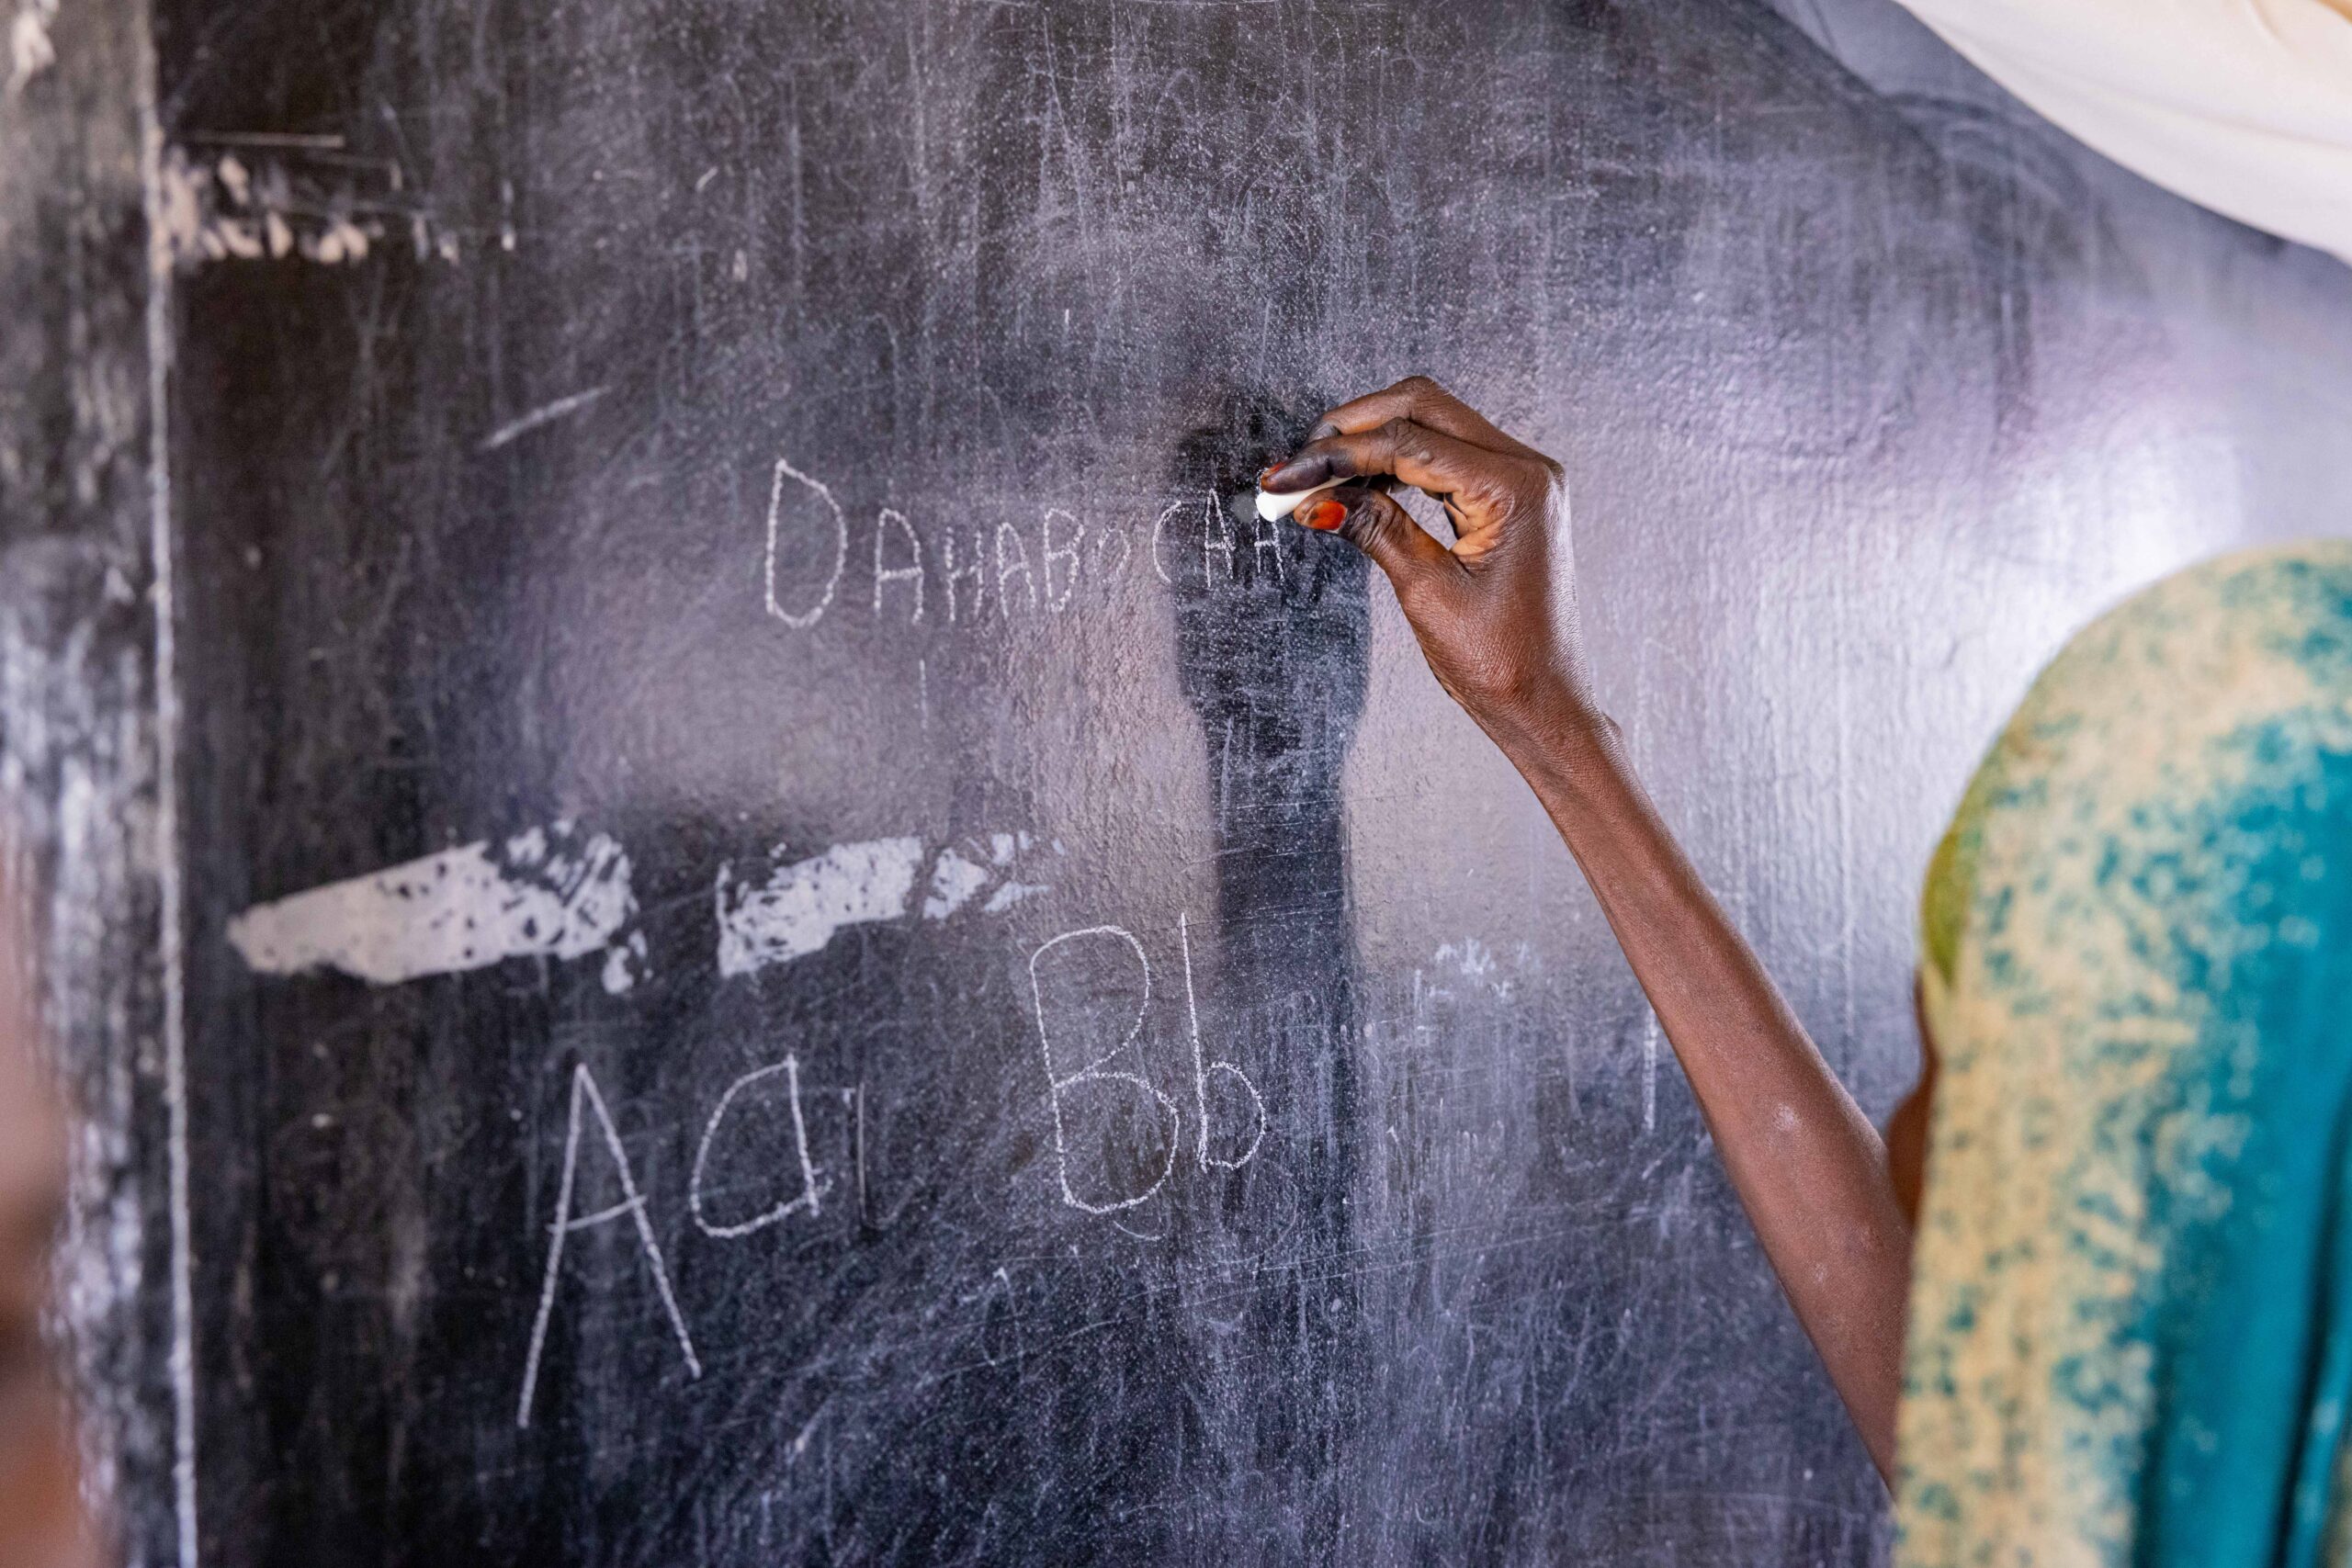 DAHABO CAA
Aa Bb